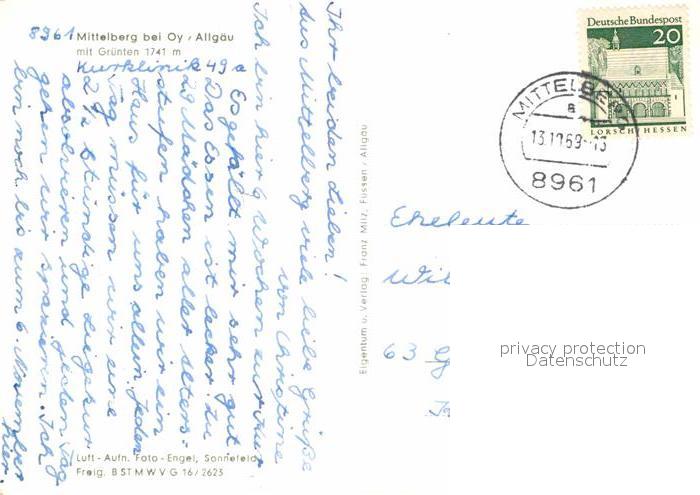 8961 Mittelberg bei Oy / Allgäu
mit Grünten 1741 m
Kurklinik 49 a
Ihr beiden Lieben!
Aus Mittelberg viele liebe Grüße
von Christine
Ich bin hier 6 Wochen zur Kur
Es gefällt mir sehr gut
Das Essen ist lecker. Zu
29 Mädchen aller Alters-
stufen haben wir ein
Haus für uns allein. Jeden
Tag müssen wir eine
2 ½ stündige Liegekur
absolvieren und jeden Tag
gehen wir spazieren. Ich
bin noch bis zum 6. November
hier.
Luft - Aufn. Foto - Engel, Sonnefeld
Freig. BSTMWVG 16/2623
Eigentum u. Verlag: Franz Milz, Füssen / Allgäu
Deutsche Bundespost
20
LORSCH/HESSEN
MITTELBERG
a
13.10.69-13
8961
Eheleute
Wil
63 G
privacy protection
Datenschutz